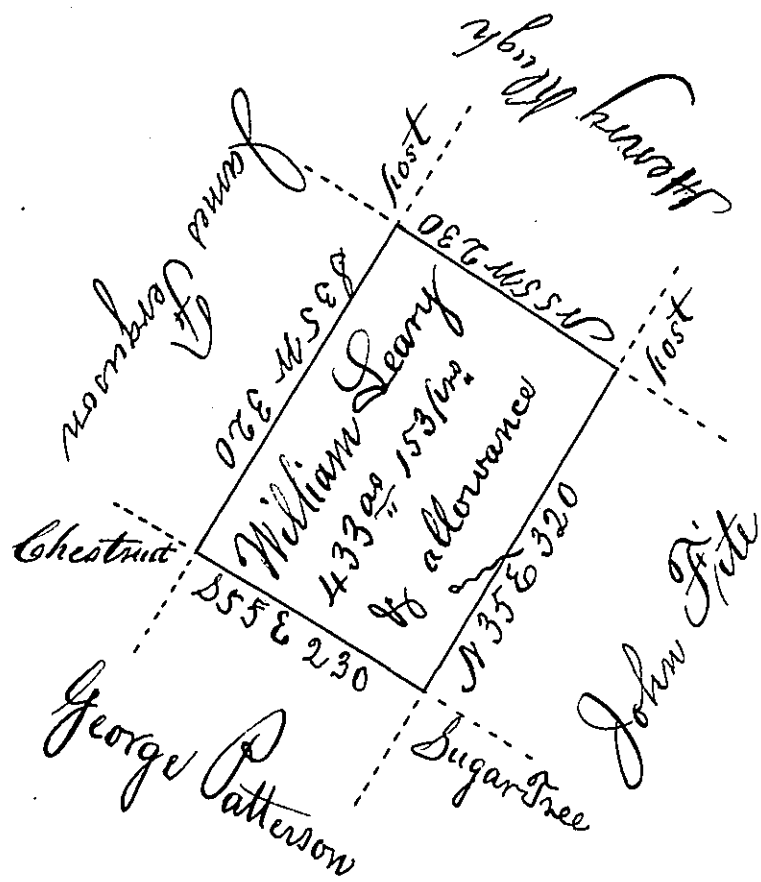 Henry Pugh
post
James Ferguson
N 55 W 230
post
S 35 W 320
William Leary
433 as 153 prs
& allowance
Chestnut
S 55 E 230
N 35 E 320
John Fite
George Patterson
Sugar Tree